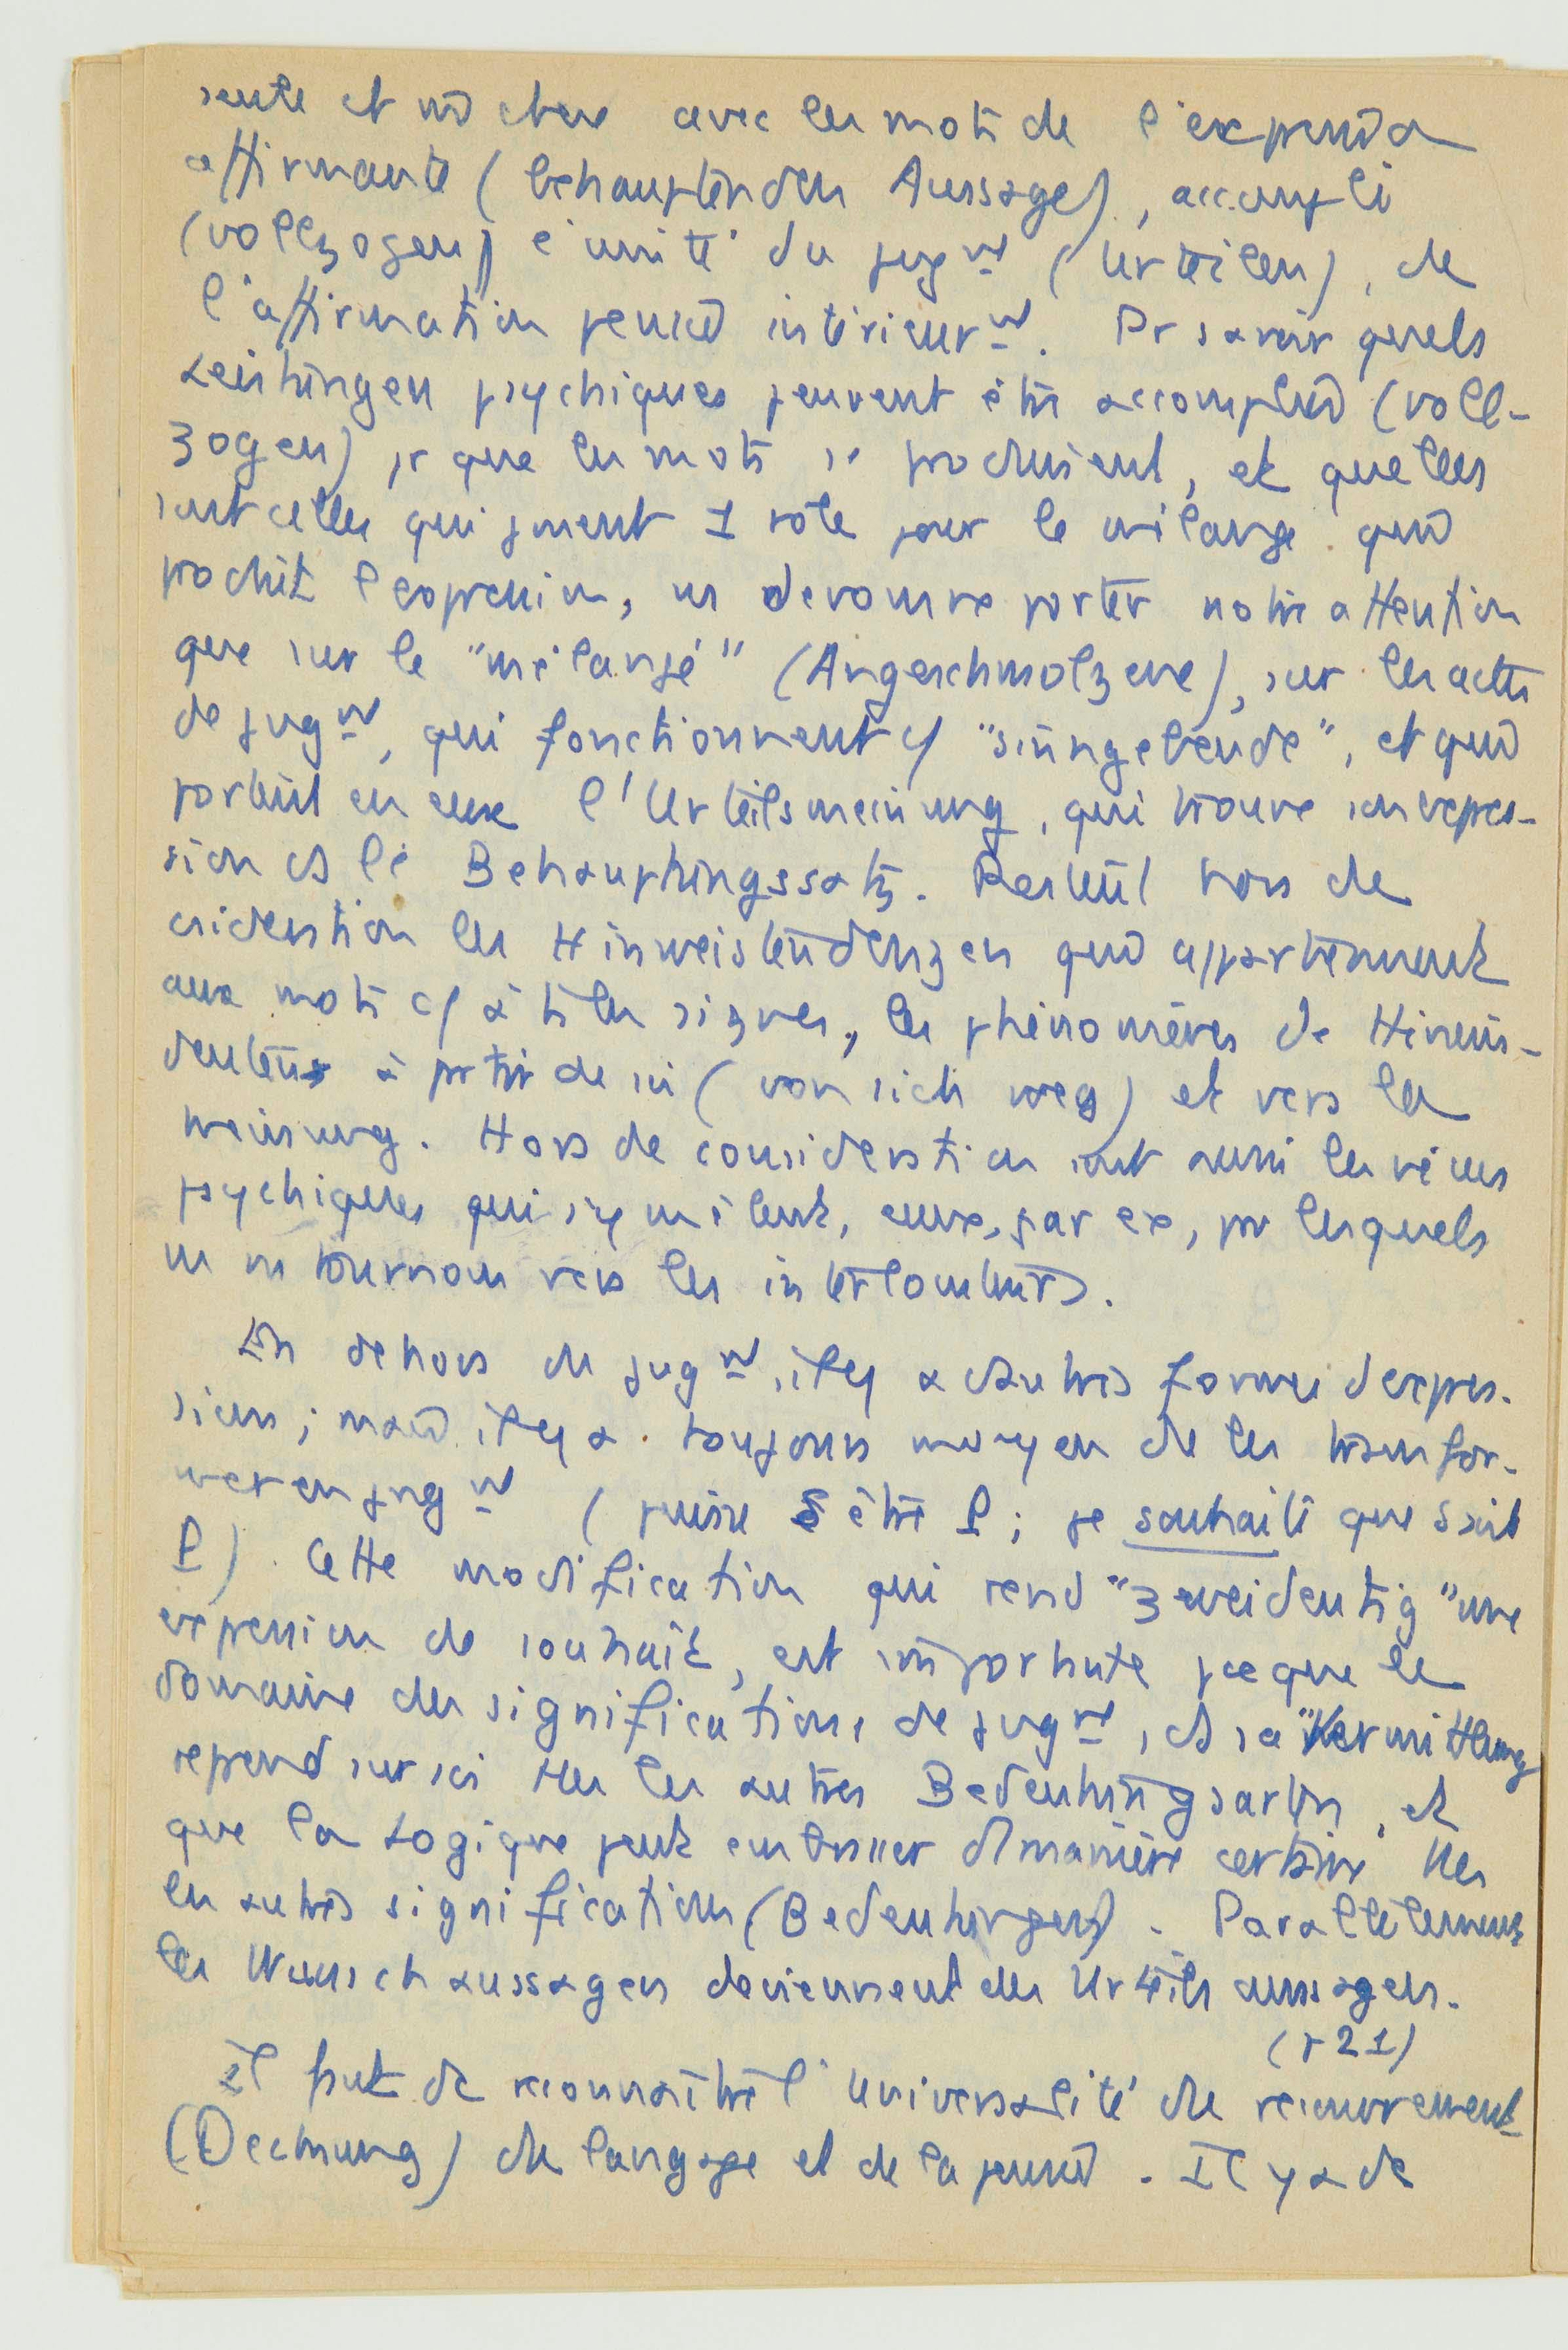 et avec les mots de l'expression
affirmante (behauptenden Aussage), accompli
(vollzogen) l'unité du jugnt (Urteilen), de
l'affirmation pensée intérieurnt. Pr savoir quels
Leistungen psychiques peuvent être accomplies (voll-
zogen) pr que les mots se produisent, et quelles
sont celles qui jouent 1 rôle pour le mélange que
produit l'expression, ns devons ne porter notre attention
que sur le "mélangé" (Angeschmolzene), sur les actes
de jugnt, qui fonctionnent "sinngebende", et qui
portent en eux l'Urteilsmeinung, qui trouve son expres-
sion ds le Behauptungssatz. Restent hors de
csidération les Hinweistendenzen qui appartiennent
aux mots à tte les signes, les phénomènes de Hinein-
deuten à partir de soi (von sich weg) et vers la
Meinung. Hors de considération sont aussi les vécus
psychiques qui s'y mêlent, ceux, par ex, par lesquels
ns ns tournons vers les interlocuteurs.
En dehors du jugnt, il y a d'autres formes d'expres-
sions ; mais il y a toujours moyen de les transfor-
mer en jugnt (puisse S être P ; je souhaite que S soit
P). Cette modification qui rend "zweideutig" une
expression de souhait, est importante pce que le
domaine des significations de jugnt, ds sa "Vermittlung
reprend sur soi ttes les autres Bedeutungsarten, et
que la Logique peut embrasser d'1 manière certaine ttes
les autres significations (Bedeutungen). Parallèlement
les Wunschaussagen deviennent des Urteilsaussagen.
(p 21)
Il faut de reconnaître l'universalité du recouvrement
(Deckung) du langage et de la pensée. Il y a de